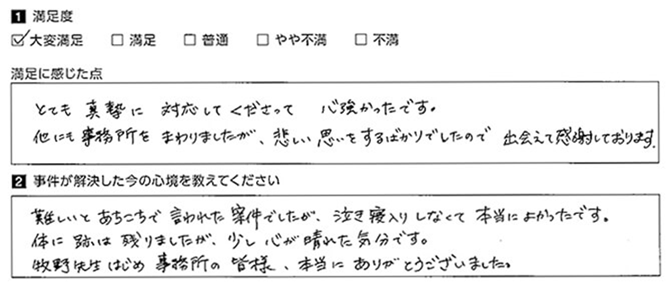 1 満足度
☑大変満足 □満足 □普通 □やや不満 □不満
満足に感じた点
とても真摯に対応してくださって心強かったです。
他にも事務所をまわりましたが、悲しい思いをするばかりでしたので出会えて感謝しております。
2 事件が解決した今の心境を教えてください
難しいとあちこちで言われた案件でしたが、泣き寝入りしなくて本当によかったです。
体に跡は残りましたが、少し心が晴れた気分です。
牧野先生はじめ事務所の皆様、本当にありがとうございました。